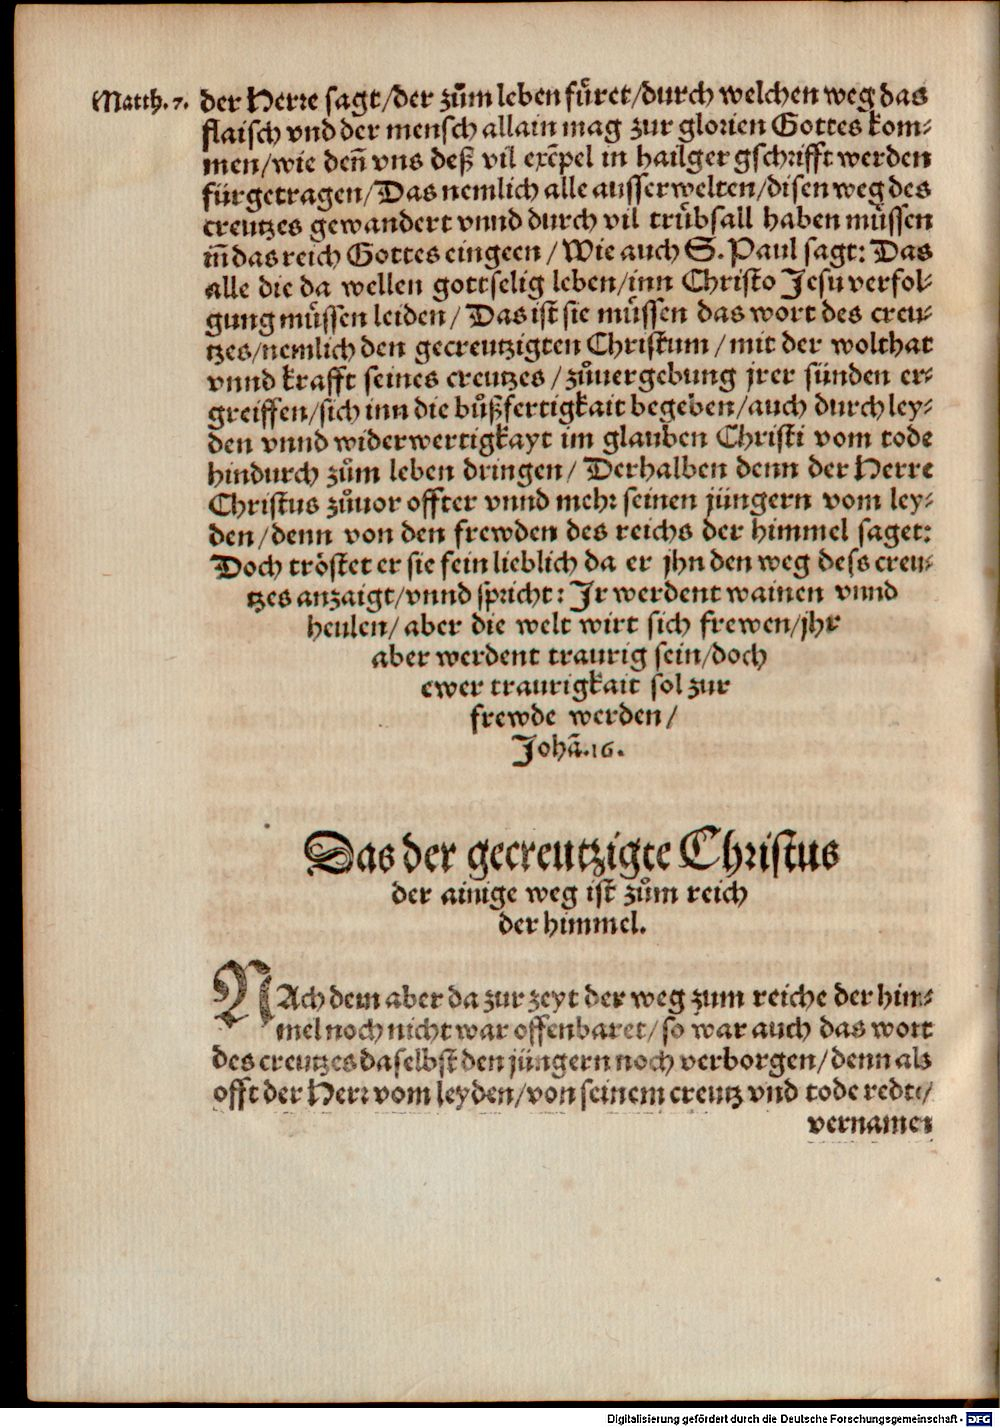 Matth. 7. der Herre sagt/der zům leben fůret/durch welchen weg das
flaisch vnd der mensch allain mag zur glorien Gottes kom-
men/wie deñ vns deß vil exẽpel in hailger gschrifft werden
fürgetragen/Das nemlich alle ausserwelten/disen weg des
creutzes gewandert vnnd durch vil trübsall haben müssen
iñ das reich Gottes eingeen/Wie auch S. Paul sagt: Das
alle die da wellen gottselig leben/inn Christo Jesu verfol-
gung müssen leiden/Das ist sie müssen das wort des creu-
tzes/nemlich den gecreutzigten Christum/mit der wolthat
vnnd krafft seines creutzes/zůuergebung jrer sünden er-
greiffen/sich inn die bůßfertigkait begeben/auch durch ley-
den vnnd widerwertigkayt im glauben Christi vom tode
hindurch zům leben dringen/Derhalben denn der Herre
Christus zůuor offter vnnd mehr seinen jüngern vom ley-
den/denn von den frewden des reichs der himmel saget:
Doch tröstet er sie fein lieblich da er jhn den weg dess creu-
tzes anzaigt/vnnd spricht: Jr werdent wainen vnnd
heulen/aber die welt wirt sich frewen/jhr
aber werdent traurig sein/doch
ewer traurigkait sol zur
frewde werden/
Johã. 16.
Das der gecreutzigte Christus
der ainige weg ist zům reich
der himmel.
NAch dem aber da zur zeyt der weg zum reiche der him-
mel noch nicht war offenbaret/so war auch das wort
des creutzes daselbst den jüngern noch verborgen/denn als
offt der Herr vom leyden/von seinem creutz vnd tode redte/
vernamen
Digitalisierung gefördert durch die Deutsche Forschungsgemeinschaft - DFG